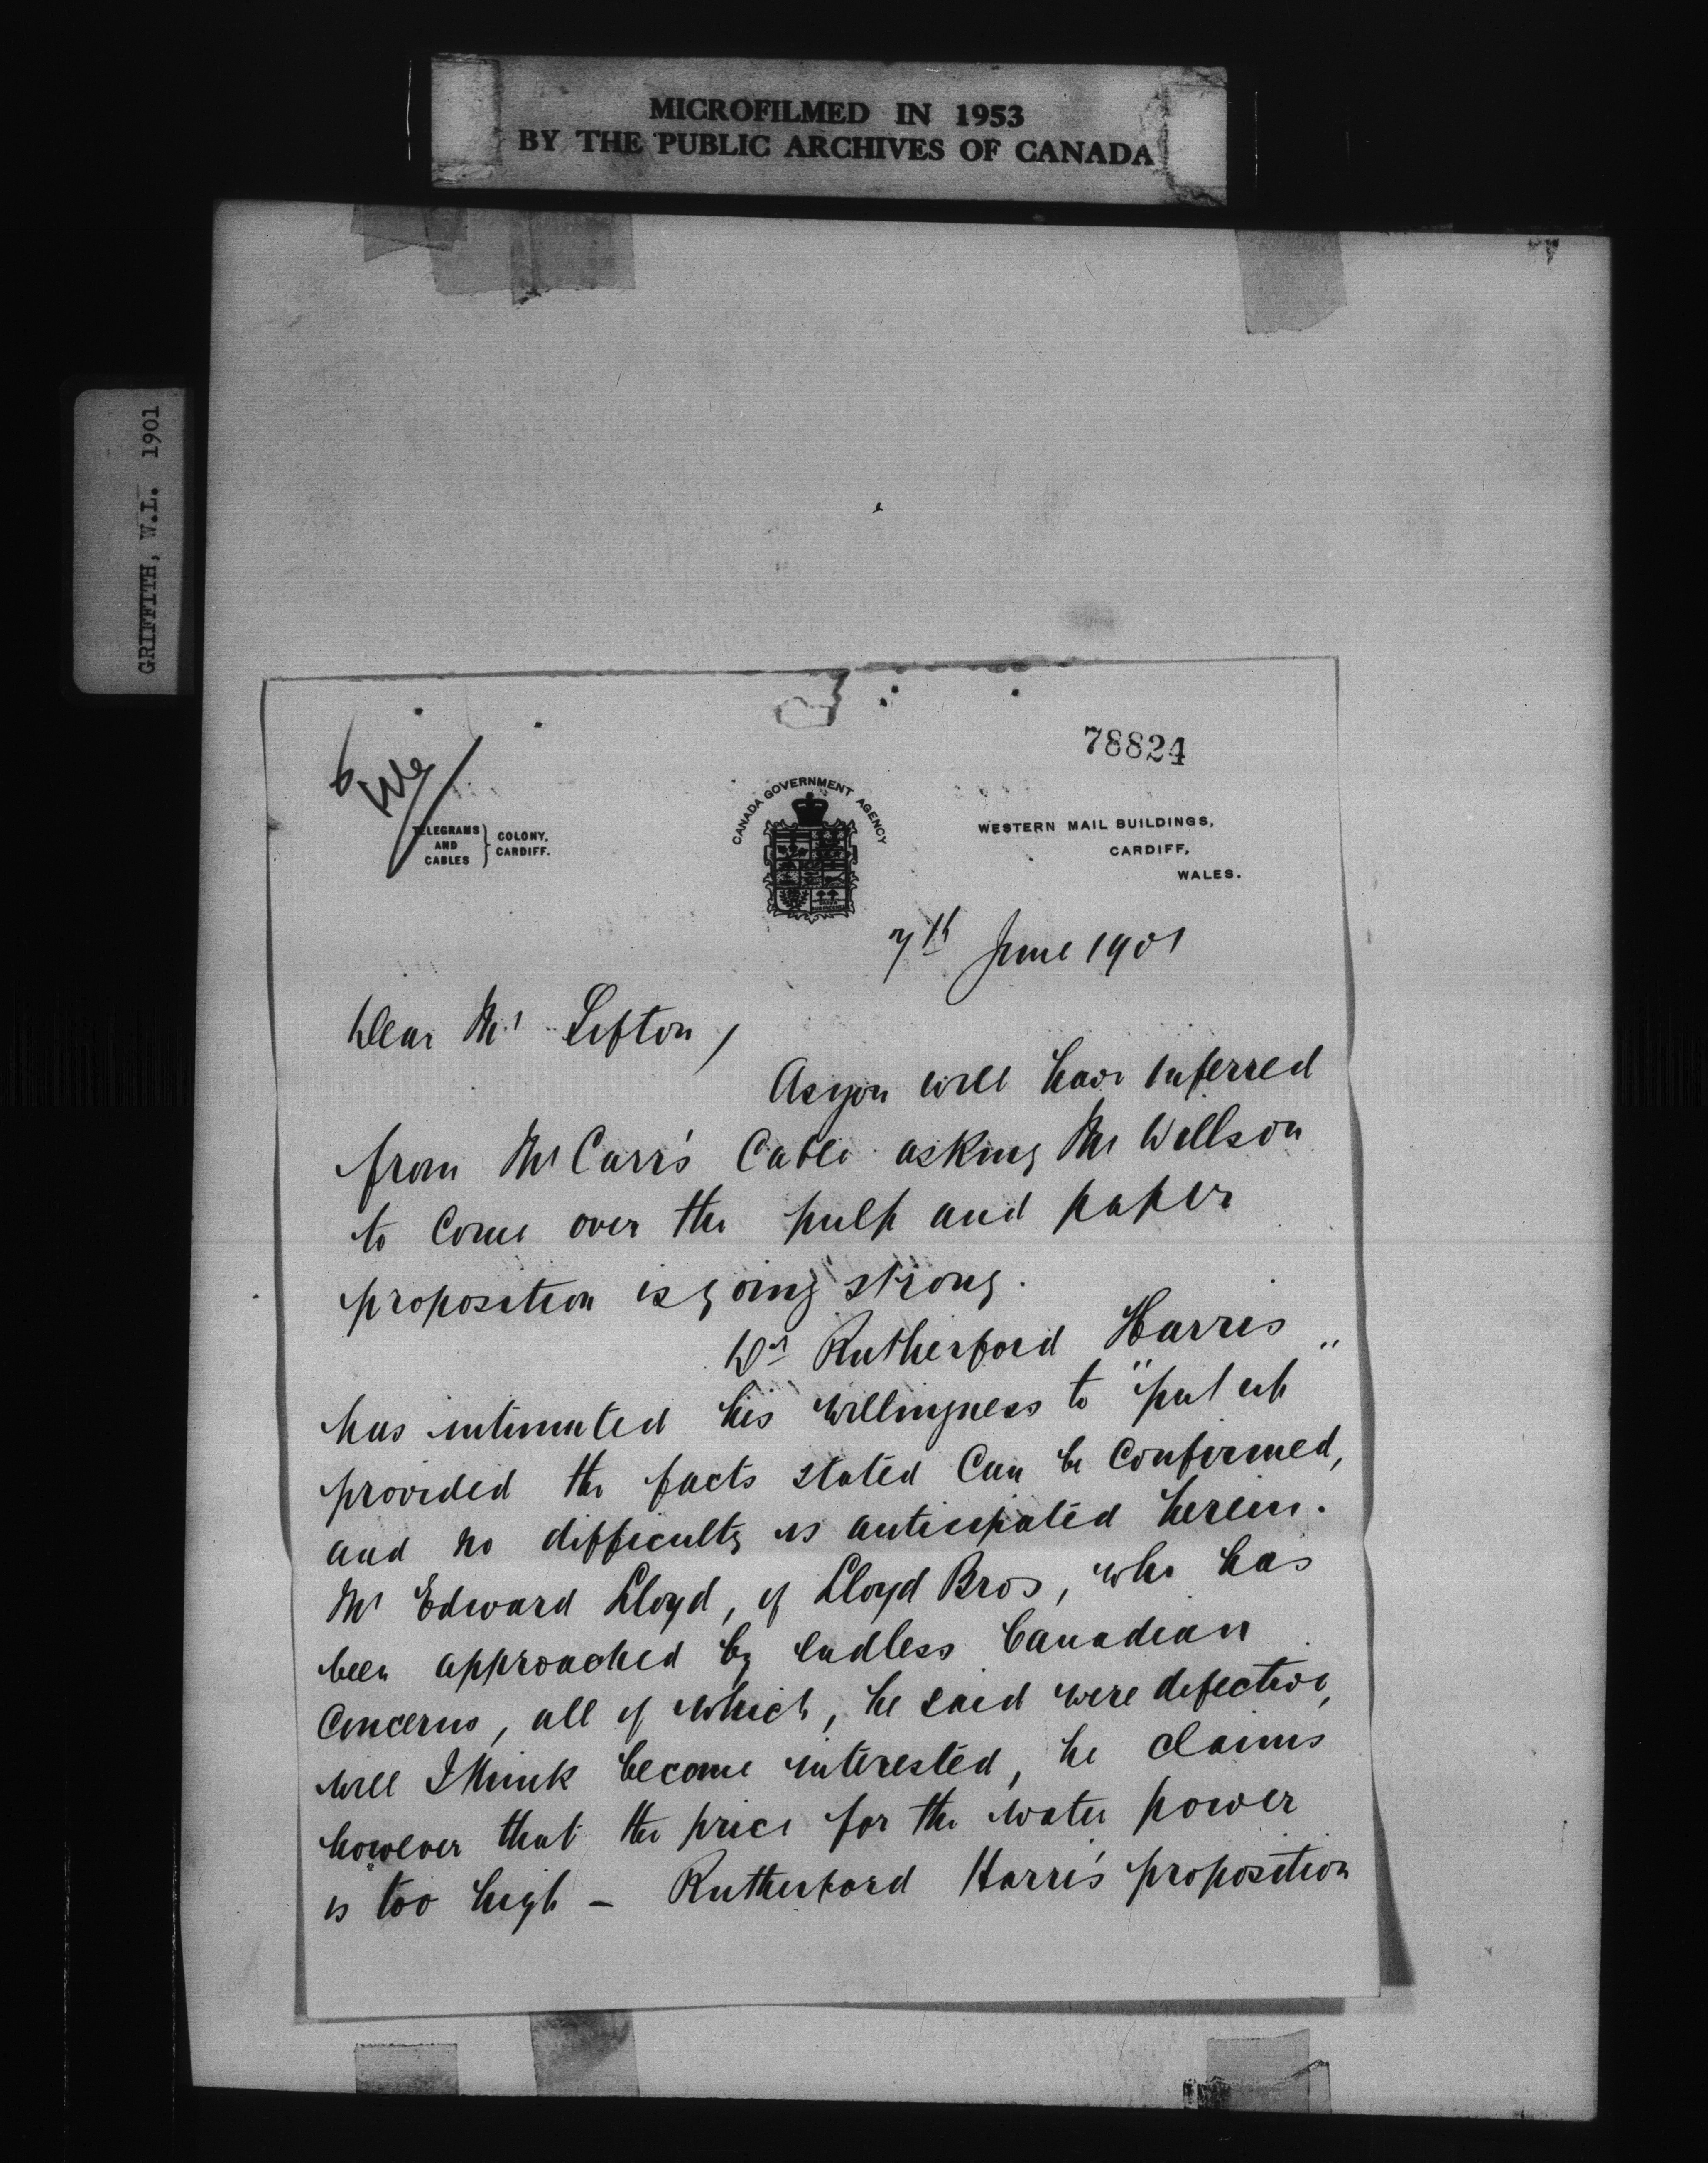 MICROFILMED IN 1953
BY THE PUBLIC ARCHIVES OF CANADA
GRIFFITH, W.L. 1901
78824
TELEGRAMS AND CABLES } COLONY, CARDIFF.
CANADA GOVERNMENT AGENCY
WESTERN MAIL BUILDINGS,
CARDIFF,
WALES.
7th June 1901
Dear Mr Sifton,
As you will have inferred
from Mr Carr's Cable asking Mr Willson
to Come over the pulp and paper
proposition is going strong.
Dr Rutherford Harris
has intimated his willingness to "put up"
provided the facts stated Can be Confirmed,
and no difficulty is anticipated herein.
Mr Edward Lloyd, of Lloyd Bros, who has
been approached by endless Canadian
Concerns, all of which, he said were defective,
will I think become interested, he claims
however that the price for the water power
is too high – Rutherford Harris' proposition